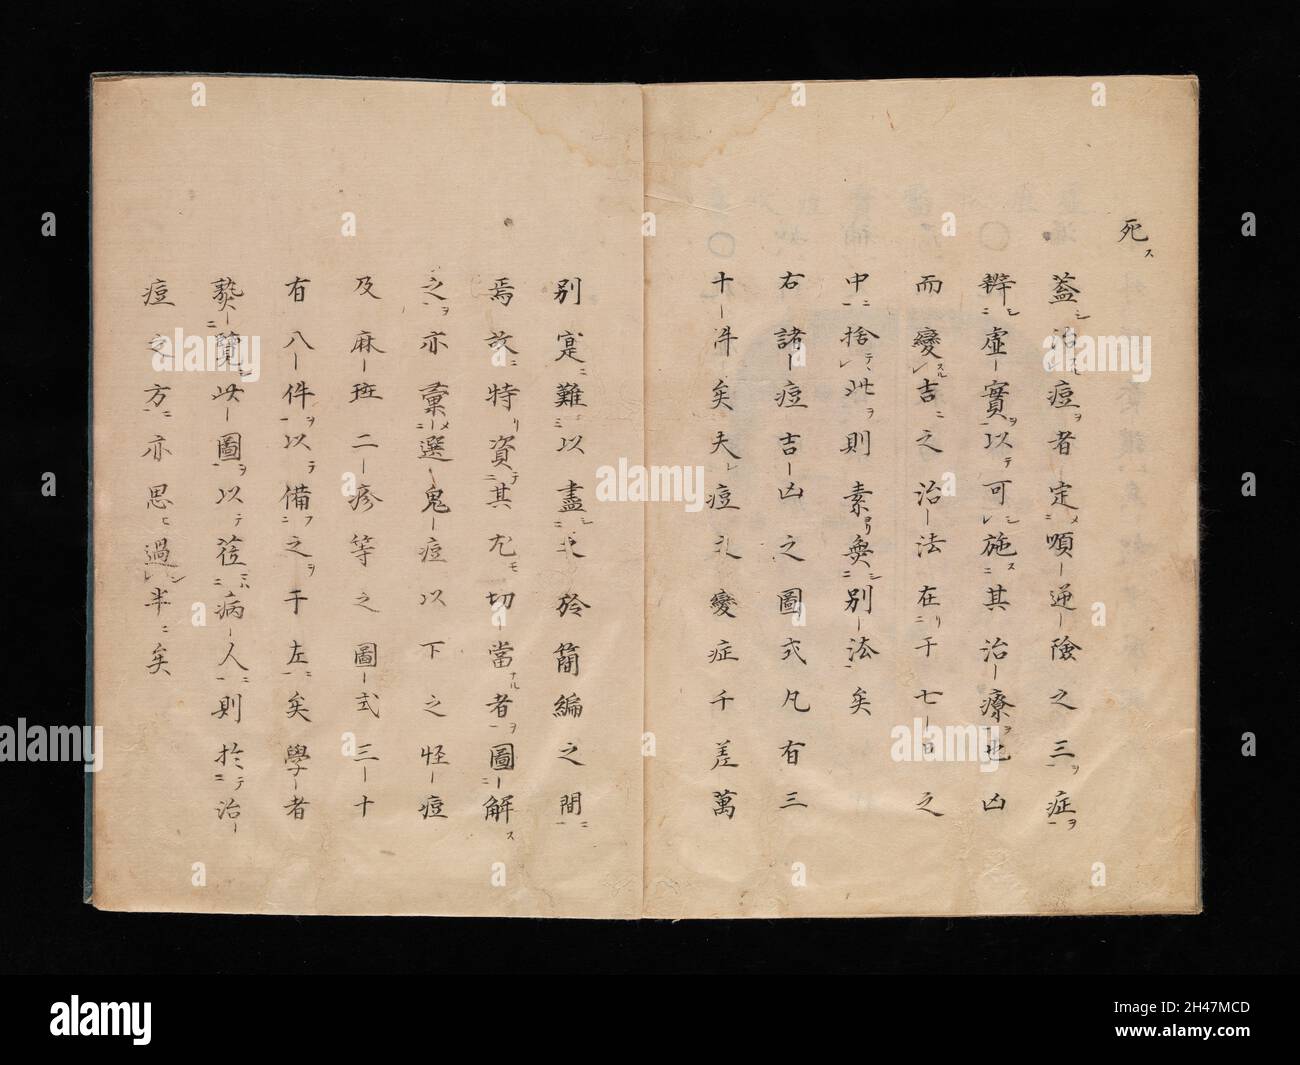 死ス
蓋シ治スル痘ヲ者定メ順逆險之三症ヲ
辨シ虚實ヲ以テ可シ施ス其治療ヲ也凶
而變スル吉ニ之治法在リ于七日之
中ニ捨テ此ヲ則素ヨリ無シ別法矣
右諸痘吉凶之圖式凡有三
十件矣夫レ痘之變症千差萬
別寔ニ難シ以盡シ之於簡編之間ニ
焉故ニ特リ資テ其尤モ切當ナル者ヲ圖解ス
之ヲ亦彙メ選鬼痘以下之怪痘
及麻班二疹等之圖式三十
有八件ヲ以テ備フ之ヲ于左ニ矣學者
覽シ此圖ヲ以テ莅ミハ病人ニ則於テ治
痘之方ニ亦思ヒ過シ半ニ矣
alamy
a
Image ID: 2H47MCD
www.alamy.com